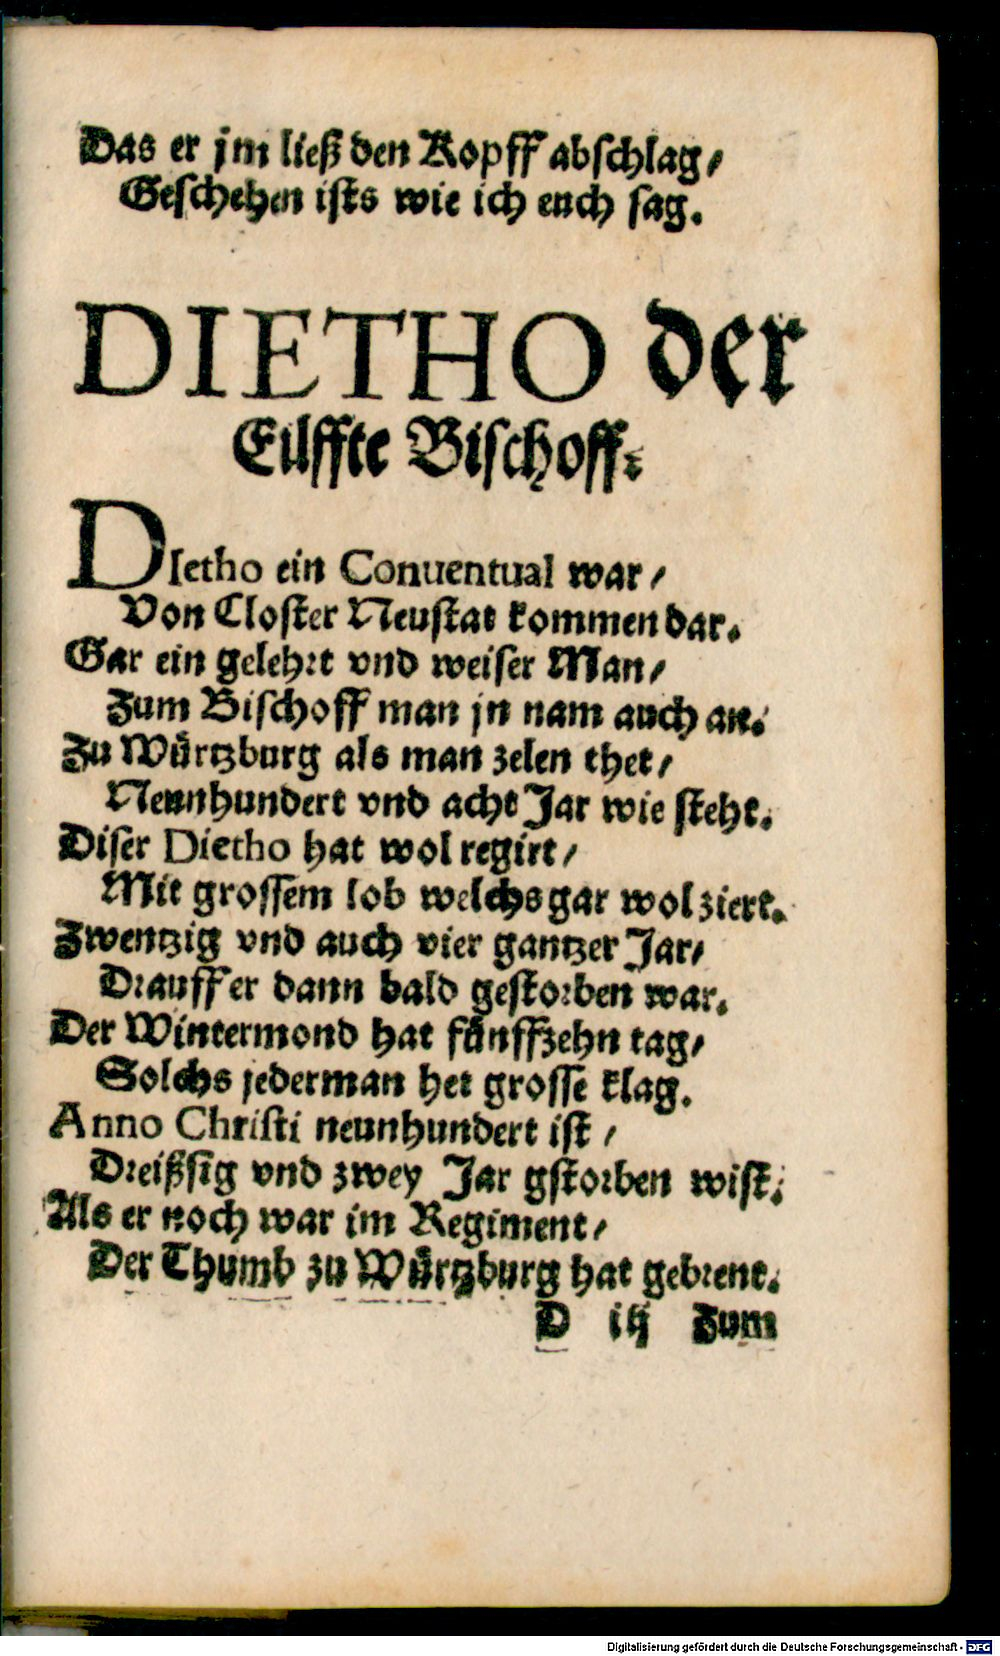 Das er jm ließ den Kopff abschlag/
Geschehen ists wie ich euch sag.
DIETHO der
Eilffte Bischoff.
DIetho ein Conuentual war/
Von Closter Neustat kommen dar.
Gar ein gelehrt vnd weiser Man/
Zum Bischoff man jn nam auch an.
Zu Wuͤrtzburg als man zelen thet/
Neunhundert vnd acht Jar wie steht.
Diser Dietho hat wol regirt/
Mit grossem lob welchs gar wol ziert.
Zwentzig vnd auch vier gantzer Jar/
Drauff er dann bald gestorben war.
Der Wintermond hat fuͤnffzehn tag/
Solchs jederman het grosse klag.
Anno Christi neunhundert ist/
Dreißsig vnd zwey Jar gstorben wist.
Als er noch war im Regiment/
Der Thumb zu Wuͤrtzburg hat gebrent.
D iij Zum
Digitalisierung gefördert durch die Deutsche Forschungsgemeinschaft - DFG